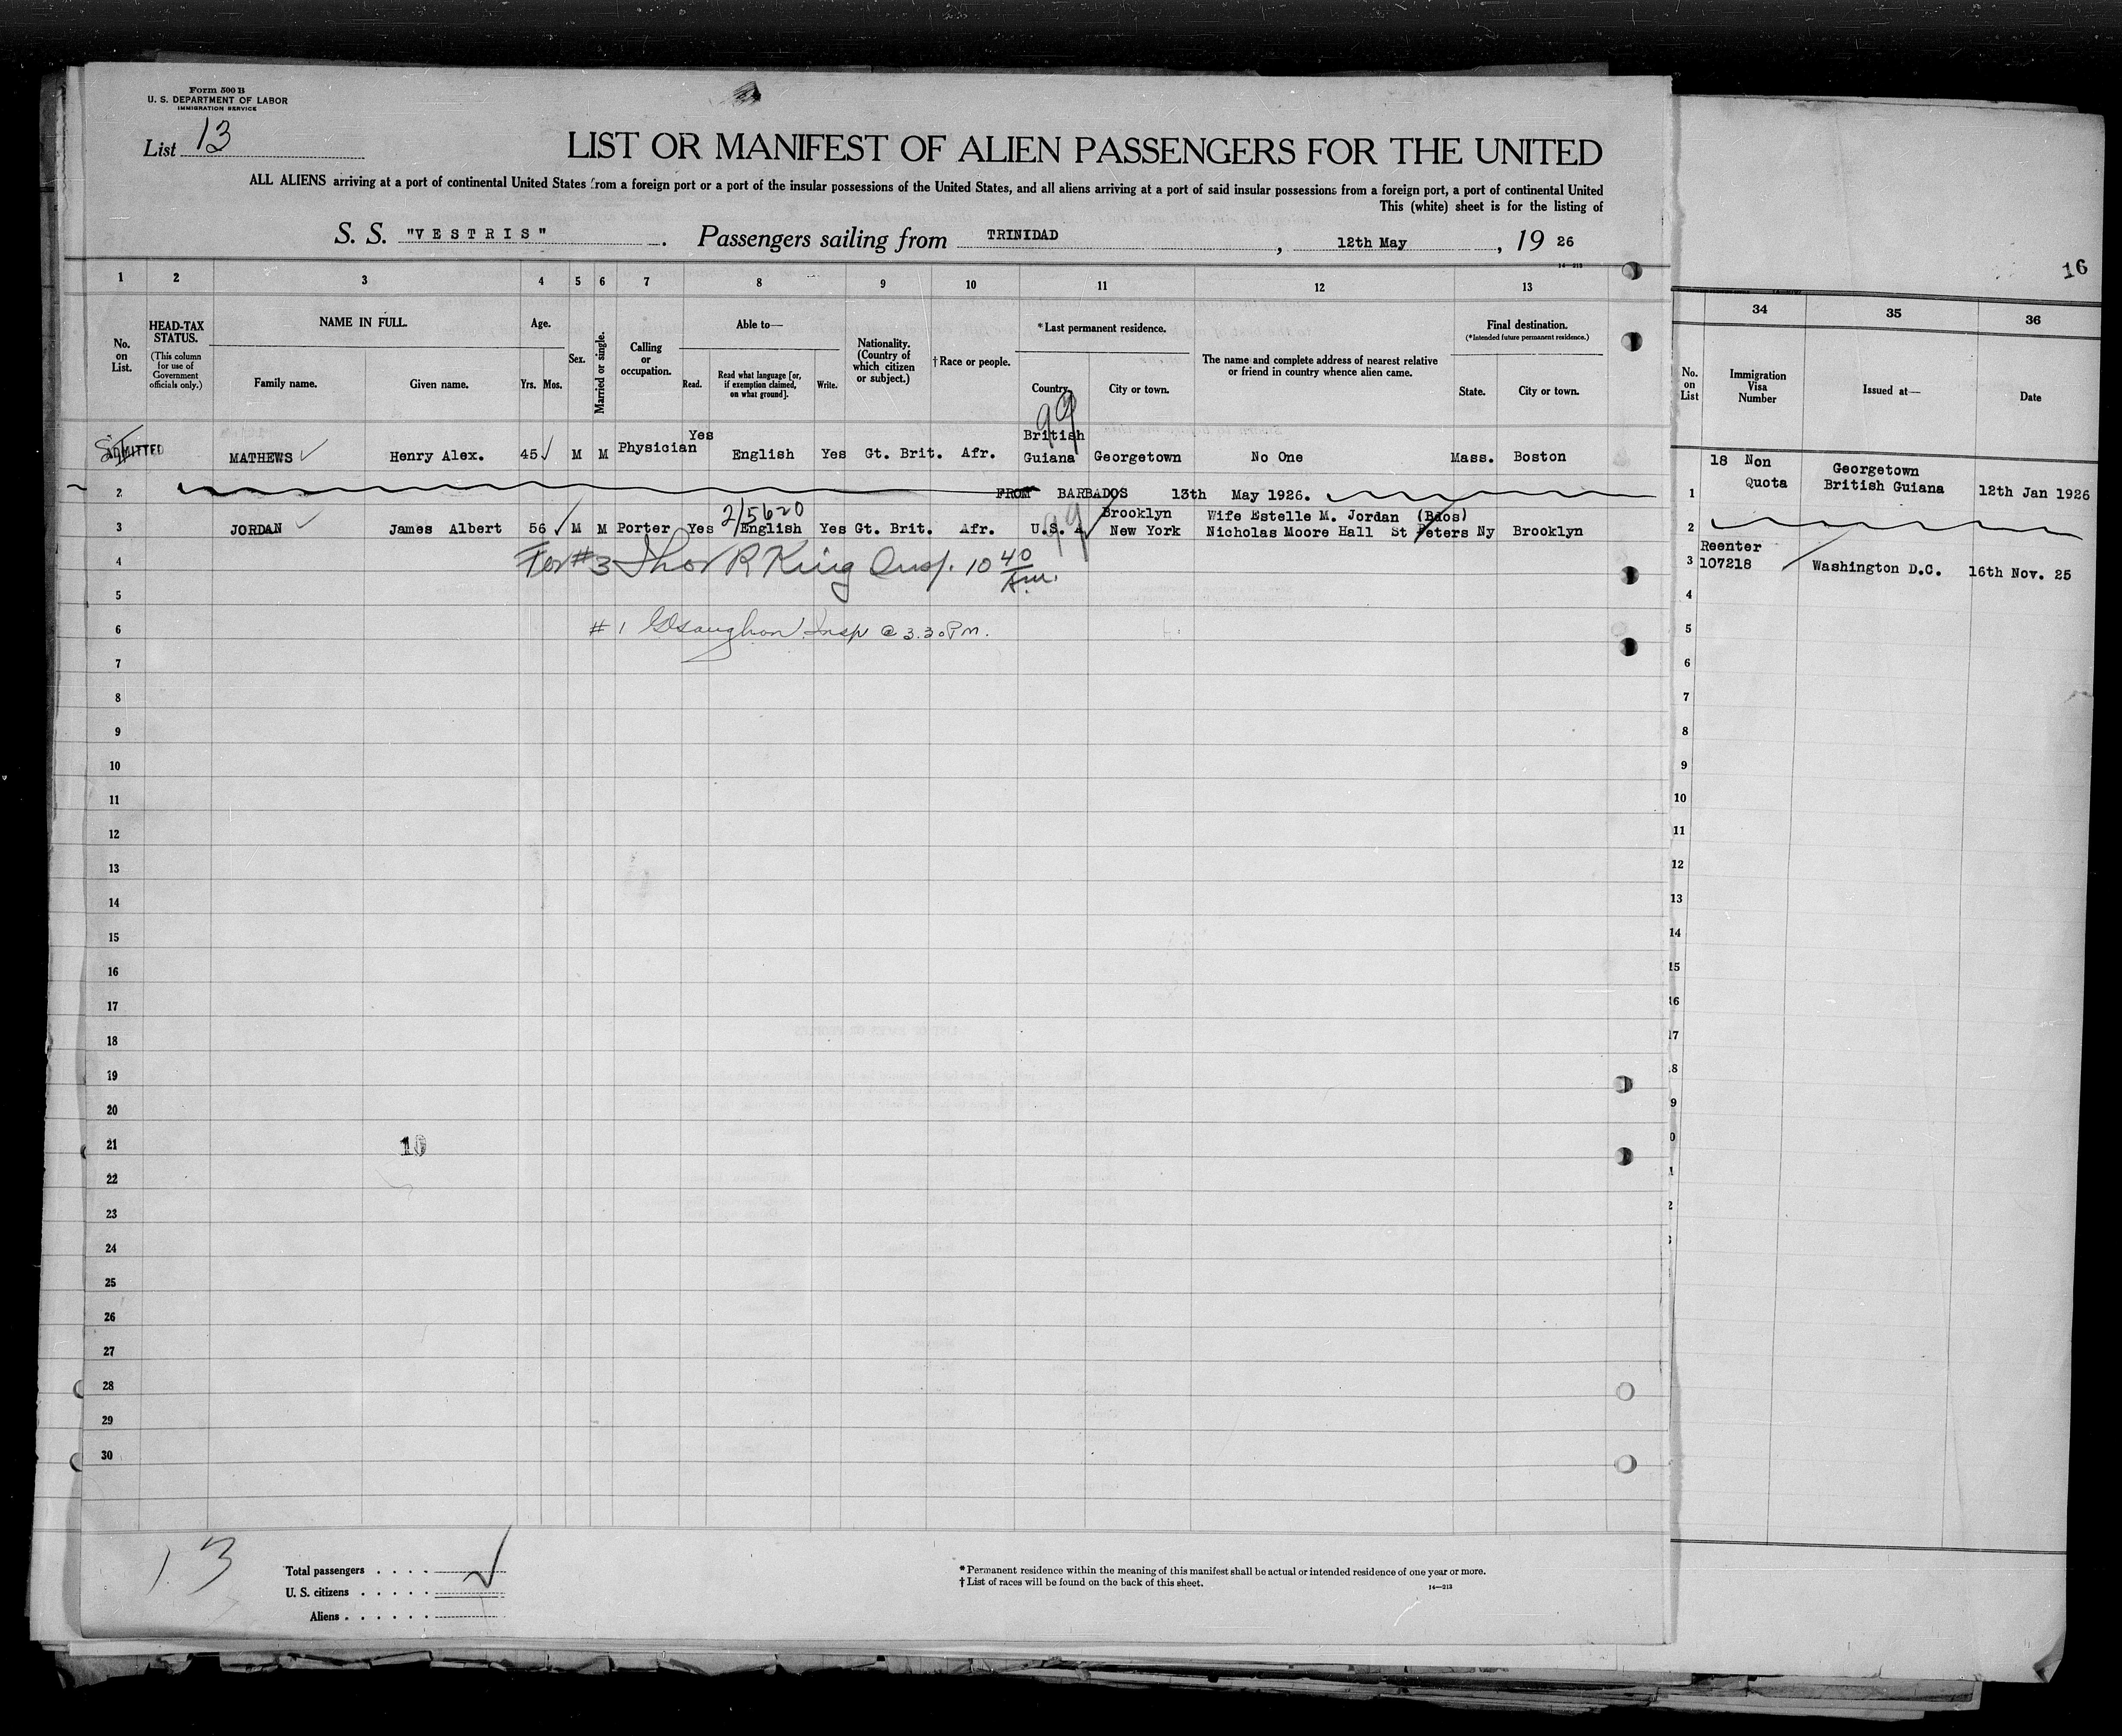 Form 500 B
U. S. DEPARTMENT OF LABOR
IMMIGRATION SERVICE
List 13
LIST OR MANIFEST OF ALIEN PASSENGERS FOR THE UNITED
ALL ALIENS arriving at a port of continental United States from a foreign port or a port of the insular possessions of the United States, and all aliens arriving at a port of said insular possessions from a foreign port, a port of continental United
This (white) sheet is for the listing of
S. S. "VESTRIS" . Passengers sailing from TRINIDAD , 12th May , 19 26
14-213
16
1 2 3 4 5 6 7 8 9 10 11 12 13 34 35 36
No. on List.
HEAD-TAX STATUS.
(This column for use of Government officials only.)
NAME IN FULL.
Family name. Given name.
Age.
Yrs. Mos.
Sex.
Married or single.
Calling or occupation.
Able to—
Read. Read what language [or, if exemption claimed, on what ground]. Write.
Nationality. (Country of which citizen or subject.)
†Race or people.
*Last permanent residence.
Country. City or town.
The name and complete address of nearest relative or friend in country whence alien came.
Final destination.
(*Intended future permanent residence.)
State. City or town.
No. on List
Immigration Visa Number
Issued at—
Date
99
ADMITTED MATHEWS Henry Alex. 45 M M Physician Yes English Yes Gt. Brit. Afr. British Guiana Georgetown No One Mass. Boston
1 18 Non Quota Georgetown British Guiana 12th Jan 1926
2 FROM BARBADOS 13th May 1926.
2
2/5620
99
3 JORDAN James Albert 56 M M Porter Yes English Yes Gt. Brit. Afr. U.S. A Brooklyn New York Wife Estelle M. Jordan (Bdos) Nicholas Moore Hall St Peters Ny Brooklyn
3 Reenter 107218 Washington D.C. 16th Nov. 25
For #3 Thor R King Insp. 10 40 A.m.
4
5
6 #1 Insp @ 3.30 PM.
7
8
9
10
11
12
13
14
15
16
17
18
19
20
21 10
22
23
24
25
26
27
28
29
30
4
5
6
7
8
9
10
11
12
13
14
15
16
17
13
Total passengers . . . .
U. S. citizens . . . . .
Aliens . . . . . .
*Permanent residence within the meaning of this manifest shall be actual or intended residence of one year or more.
†List of races will be found on the back of this sheet.
14-213